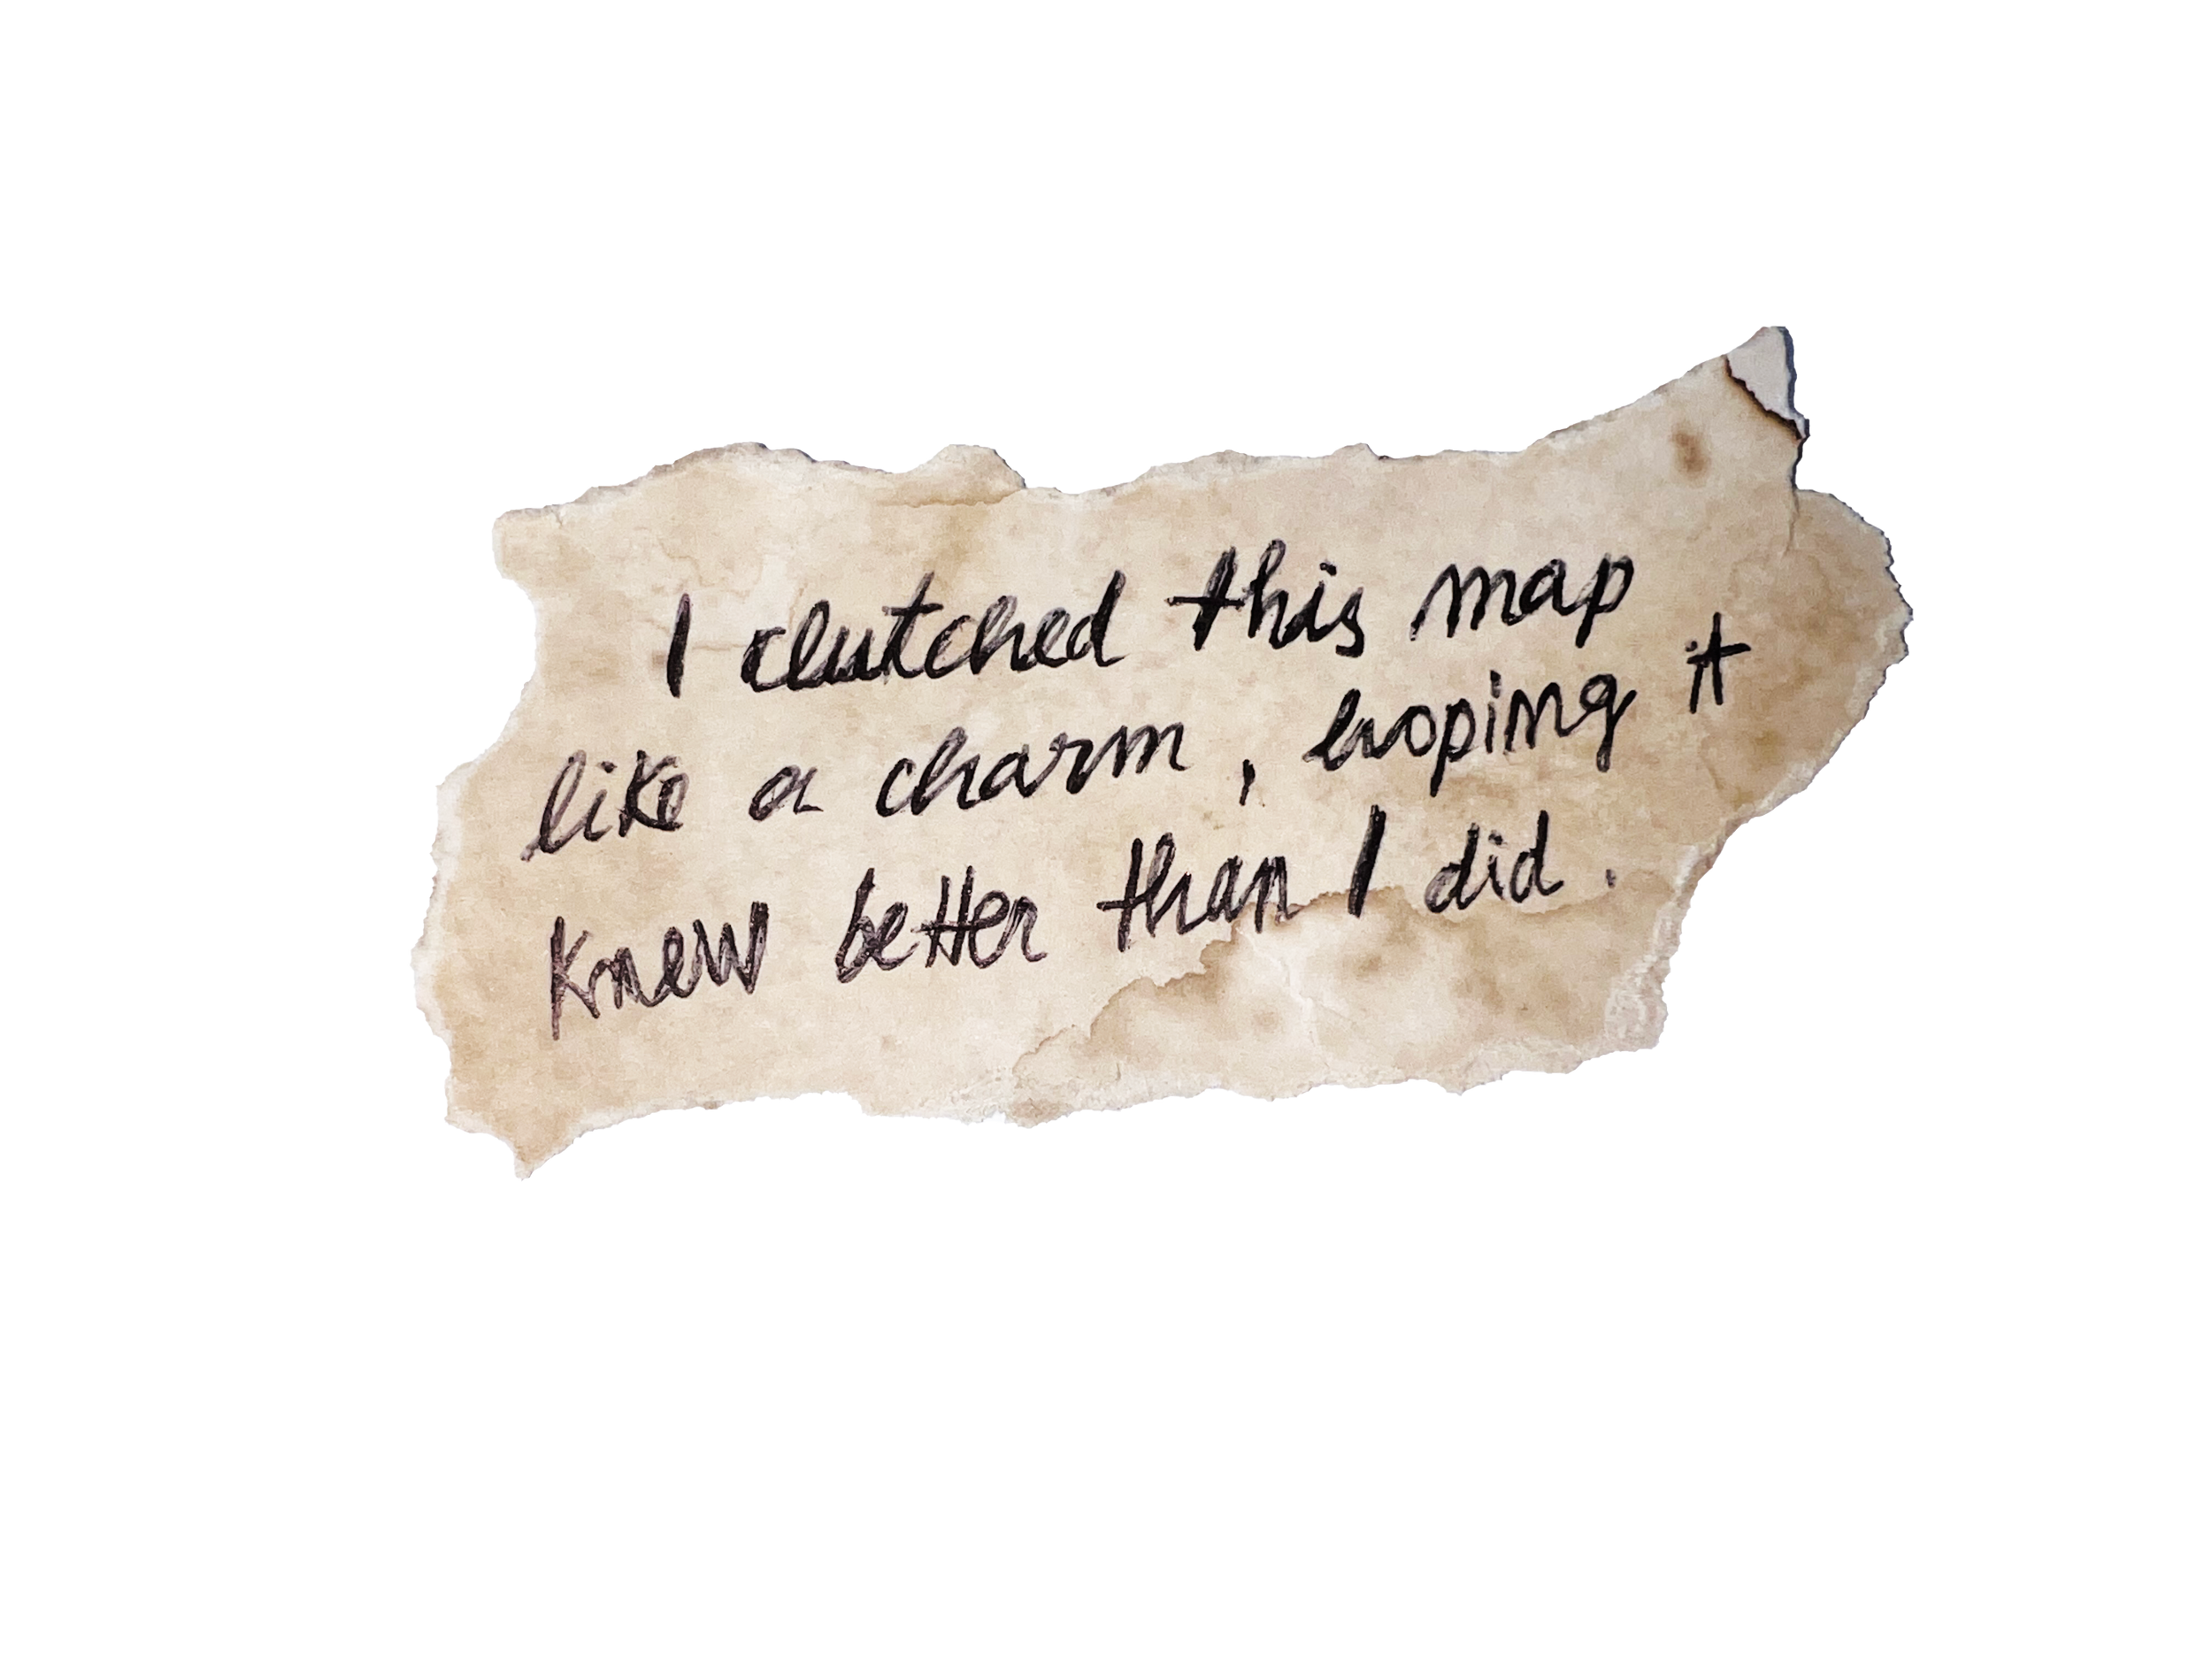 I clutched this map
like a charm, hoping it
knew better than I did.